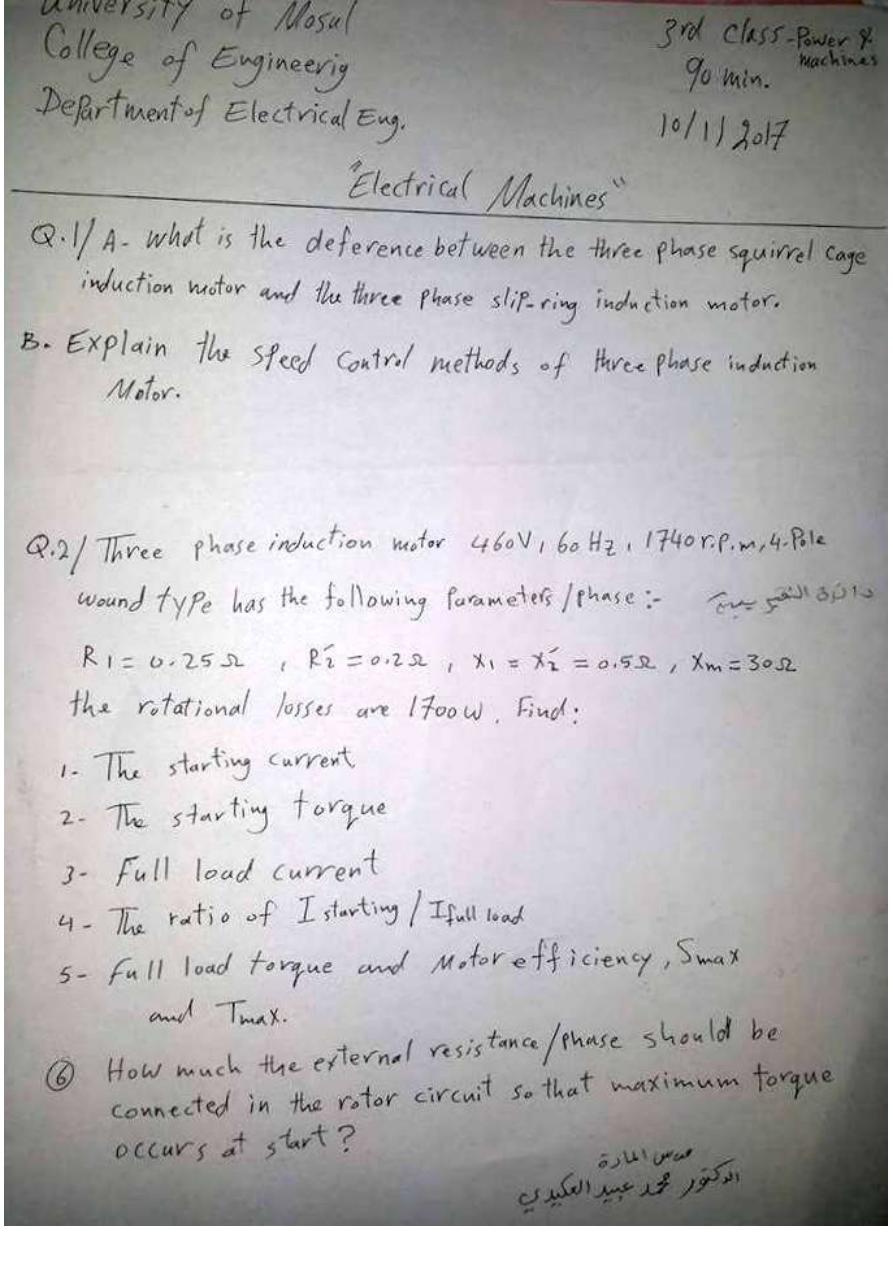 University of Mosul
College of Engineerig
Department of Electrical Eng.
3rd class-Power &
machines
90 min.
10/1/2017
"Electrical Machines"
Q.1/ A- what is the deference between the three phase squirrel cage
induction motor and the three phase slip-ring induction motor.
B. Explain the speed control methods of three phase induction
Motor.
Q.2/ Three phase induction motor 460V, 60 Hz, 1740 r.p.m, 4-Pole
wound type has the following Parameters/phase:-
R1 = 0.25Ω , R2́ = 0.2Ω , X1 = X2́ = 0.5Ω , Xm = 30Ω
the rotational losses are 1700w. Find:
1- The starting current
2- The starting torque
3- Full load current
4- The ratio of I starting / I full load
5- full load torque and Motor efficiency, Smax
and Tmax.
6 How much the external resistance/phase should be
connected in the rotor circuit so that maximum torque
occurs at start?
مدرس المادة
الدكتور محمد عبيد العكيدي